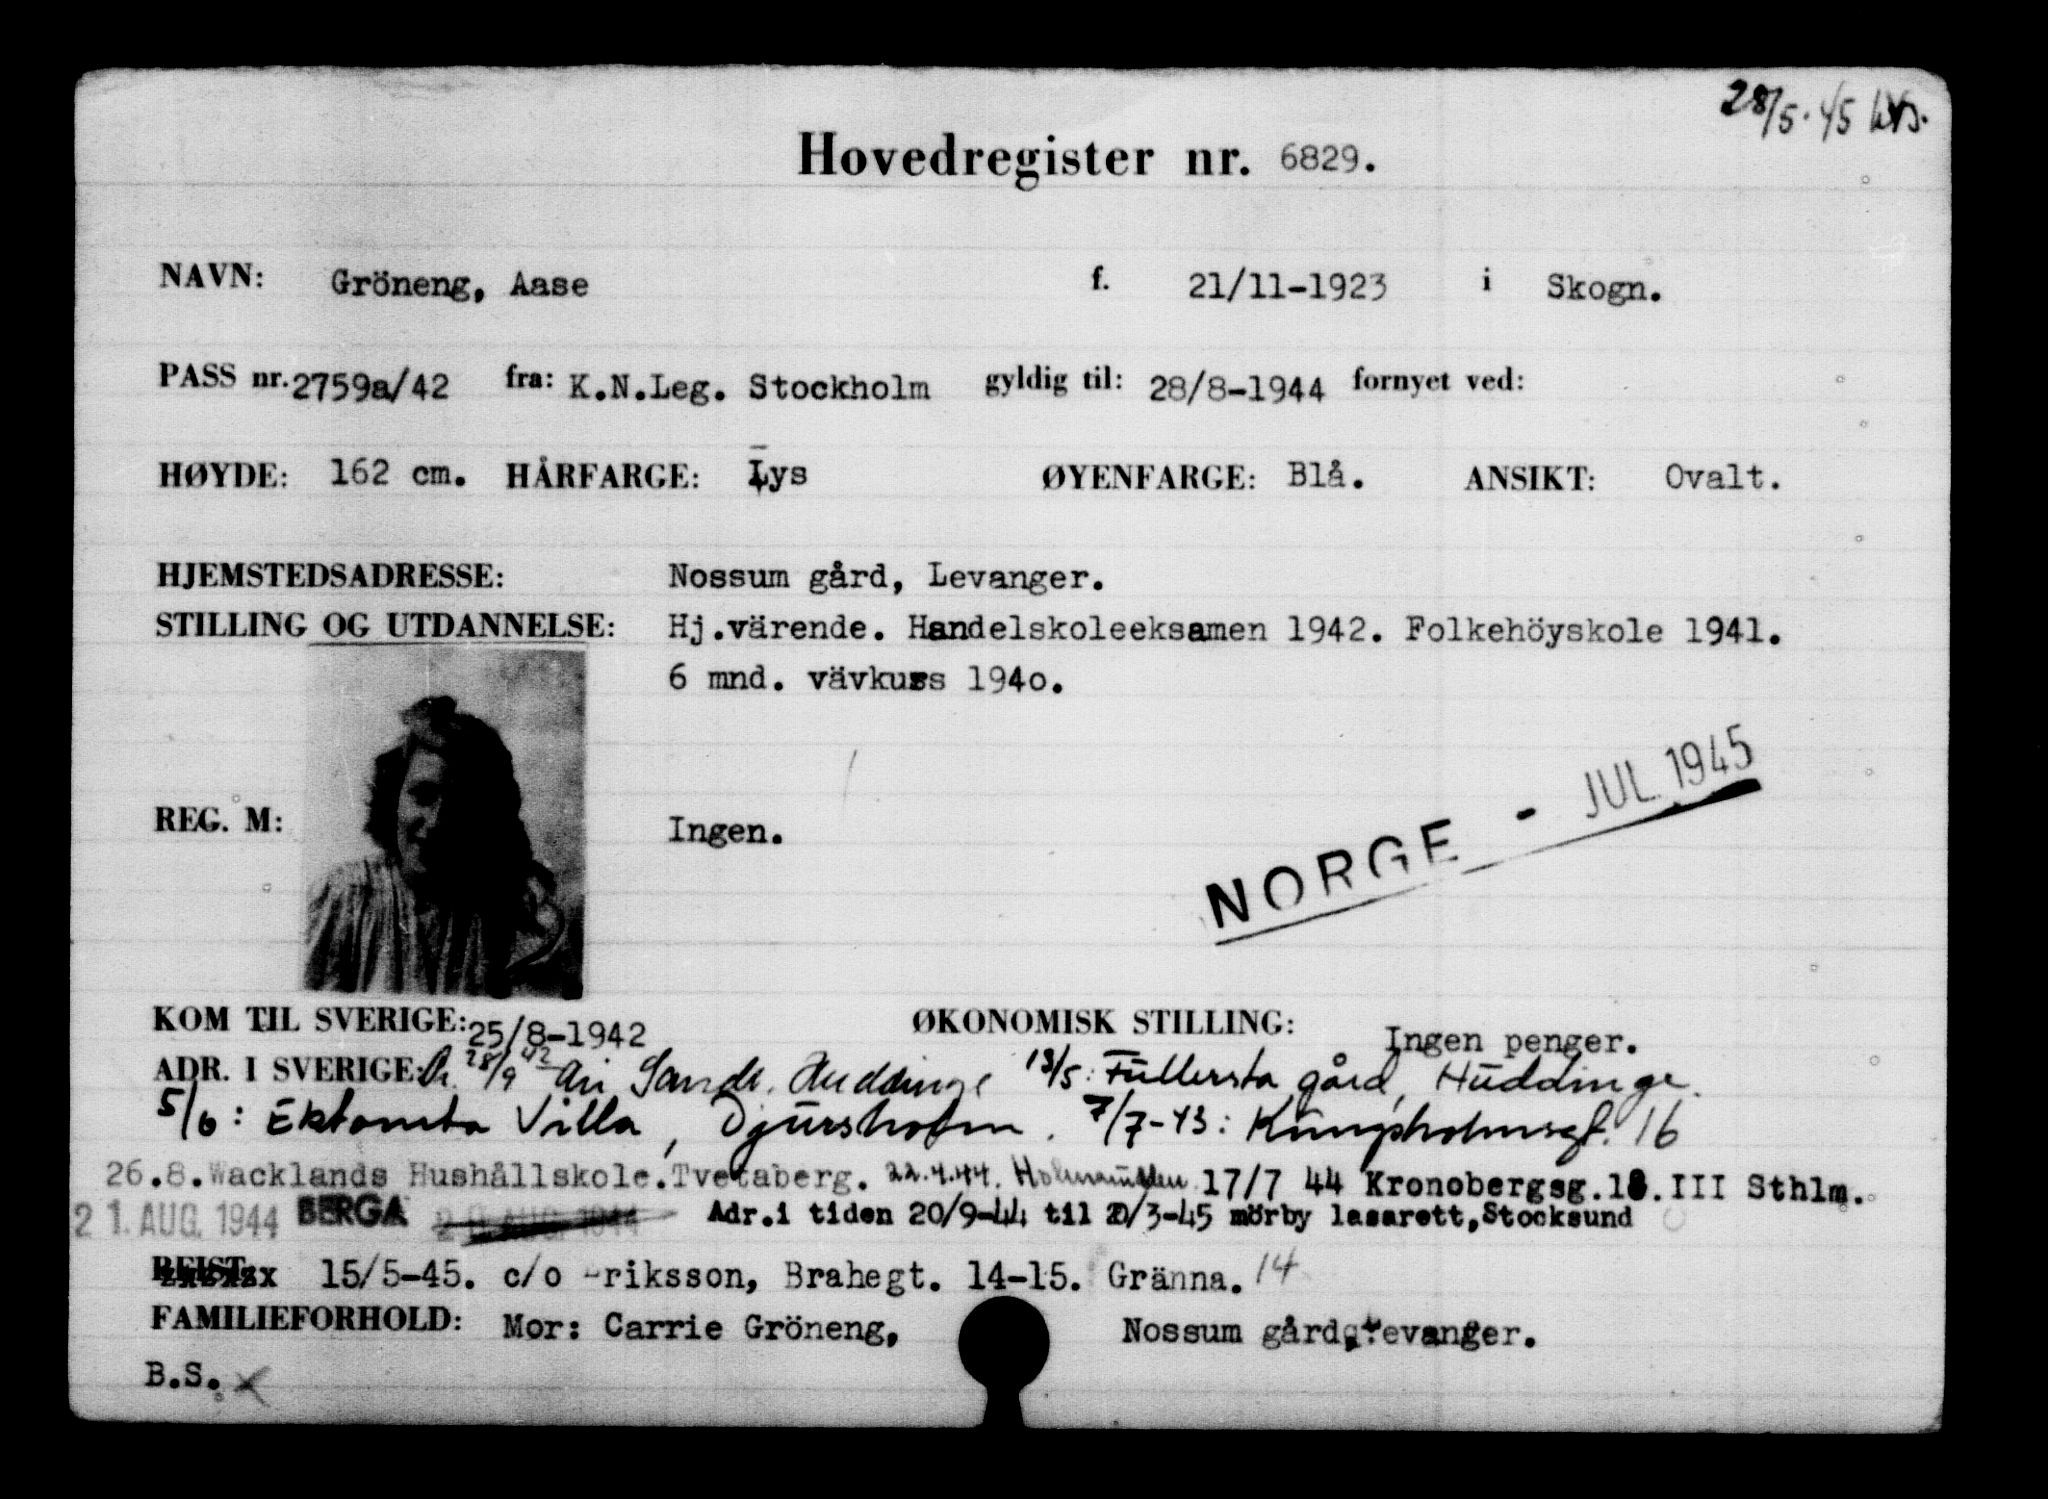 28/5.45
Hovedregister nr. 6829.
NAVN: Gröneng, Aase f. 21/11-1923 i Skogn.
PASS nr. 2759a/42 fra: K.N.Leg. Stockholm gyldig til: 28/8-1944 fornyet ved:
HØYDE: 162 cm. HÅRFARGE: Lys ØYENFARGE: Blå. ANSIKT: Ovalt.
HJEMSTEDSADRESSE: Nossum gård, Levanger.
STILLING OG UTDANNELSE: Hj.värende. Handelskoleeksamen 1942. Folkehöyskole 1941.
6 mnd. vävkurs 194o.
JUL 1945
REG. M: Ingen.
NORGE -
KOM TIL SVERIGE: 25/8-1942 ØKONOMISK STILLING: Ingen penger.
ADR. I SVERIGE: 28/9 42 Huddinge 13/5: Fullersta gård, Huddinge.
5/6: Villa, Djursholm. 7/7-43: 16
26.8. Wacklands Hushållskole. Tvetaberg. 22.4.44. 17/7 44 Kronobergsg. 18. III Sthlm.
21. AUG. 1944 BERGA Adr.i tiden 20/9-44 til /3-45 mörby lasarett, Stocksund
REIST: 15/5-45. c/o riksson, Brahegt. 14-15. Gränna. 14
FAMILIEFORHOLD: Mor: Carrie Gröneng, Nossum gård, evanger.
B.S. x